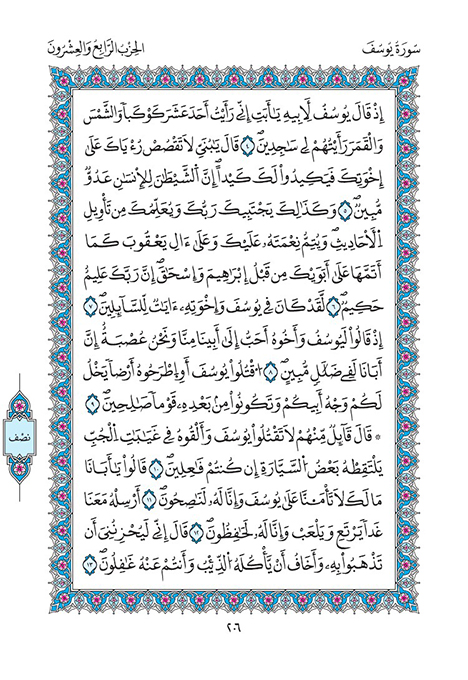 سُورَةُ يُوسُفَ
الحِزْبُ الرَّابِعُ وَالعِشْرُونَ
إِذْ قَالَ يُوسُفُ لِأَبِيهِ يَٰٓأَبَتِ إِنِّي رَأَيْتُ أَحَدَ عَشَرَ كَوْكَباً وَالشَّمْسَ
وَالْقَمَرَ رَأَيْتُهُمْ لِي سَٰجِدِينَۖ ٤ قَالَ يَٰبُنَيِّ لَا تَقْصُصْ رُءْيَاكَ عَلَىٰ
إِخْوَتِكَ فَيَكِيدُواْ لَكَ كَيْداًۖ إِنَّ الشَّيْطَٰنَ لِلْإِنسَٰنِ عَدُوٌّ
مُّبِينٌۖ ٥ وَكَذَٰلِكَ يَجْتَبِيكَ رَبُّكَ وَيُعَلِّمُكَ مِن تَأْوِيلِ
الْأَحَادِيثِۖ وَيُتِمُّ نِعْمَتَهُۥ عَلَيْكَ وَعَلَىٰٓ ءَالِ يَعْقُوبَ كَمَآ
أَتَمَّهَا عَلَىٰٓ أَبَوَيْكَ مِن قَبْلُ إِبْرَٰهِيمَ وَإِسْحَٰقَۖ إِنَّ رَبَّكَ عَلِيمٌ
حَكِيمٌۖ ٦ لَّقَدْ كَانَ فِي يُوسُفَ وَإِخْوَتِهِۦٓ ءَايَٰتٌ لِّلسَّآئِلِينَۖ ٧
إِذْ قَالُواْ لَيُوسُفُ وَأَخُوهُ أَحَبُّ إِلَىٰٓ أَبِينَا مِنَّا وَنَحْنُ عُصْبَةٌۖ إِنَّ
أَبَانَا لَفِي ضَلَٰلٍ مُّبِينٍۖ ٨ اقْتُلُواْ يُوسُفَ أَوِ اطْرَحُوهُ أَرْضاً يَخْلُ
لَكُمْ وَجْهُ أَبِيكُمْ وَتَكُونُواْ مِنۢ بَعْدِهِۦ قَوْماً صَٰلِحِينَۖ ٩
* قَالَ قَآئِلٌ مِّنْهُمْ لَا تَقْتُلُواْ يُوسُفَ وَأَلْقُوهُ فِي غَيَٰبَٰتِ الْجُبِّ
يَلْتَقِطْهُ بَعْضُ السَّيَّارَةِ إِن كُنتُمْ فَٰعِلِينَۖ ١٠ قَالُواْ يَٰٓأَبَانَا
مَا لَكَ لَا تَأْمَ۬نَّا عَلَىٰ يُوسُفَ وَإِنَّا لَهُۥ لَنَٰصِحُونَۖ ١١ أَرْسِلْهُ مَعَنَا
غَداً يَرْتَعِ وَيَلْعَبْ وَإِنَّا لَهُۥ لَحَٰفِظُونَۖ ١٢ قَالَ إِنِّي لَيُحْزِنُنِيَ أَن
تَذْهَبُواْ بِهِۦ وَأَخَافُ أَن يَأْكُلَهُ الذِّيبُ وَأَنتُمْ عَنْهُ غَٰفِلُونَۖ ١٣
نصْف
٢٠٦